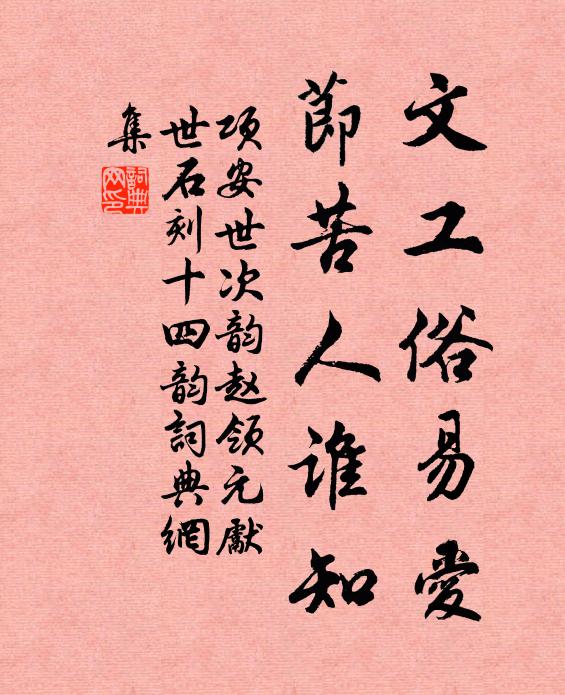 文工俗易愛
節苦人誰知
项安世次韵赵领元獻
世石刻十四韵詞典網
集
詞典網印